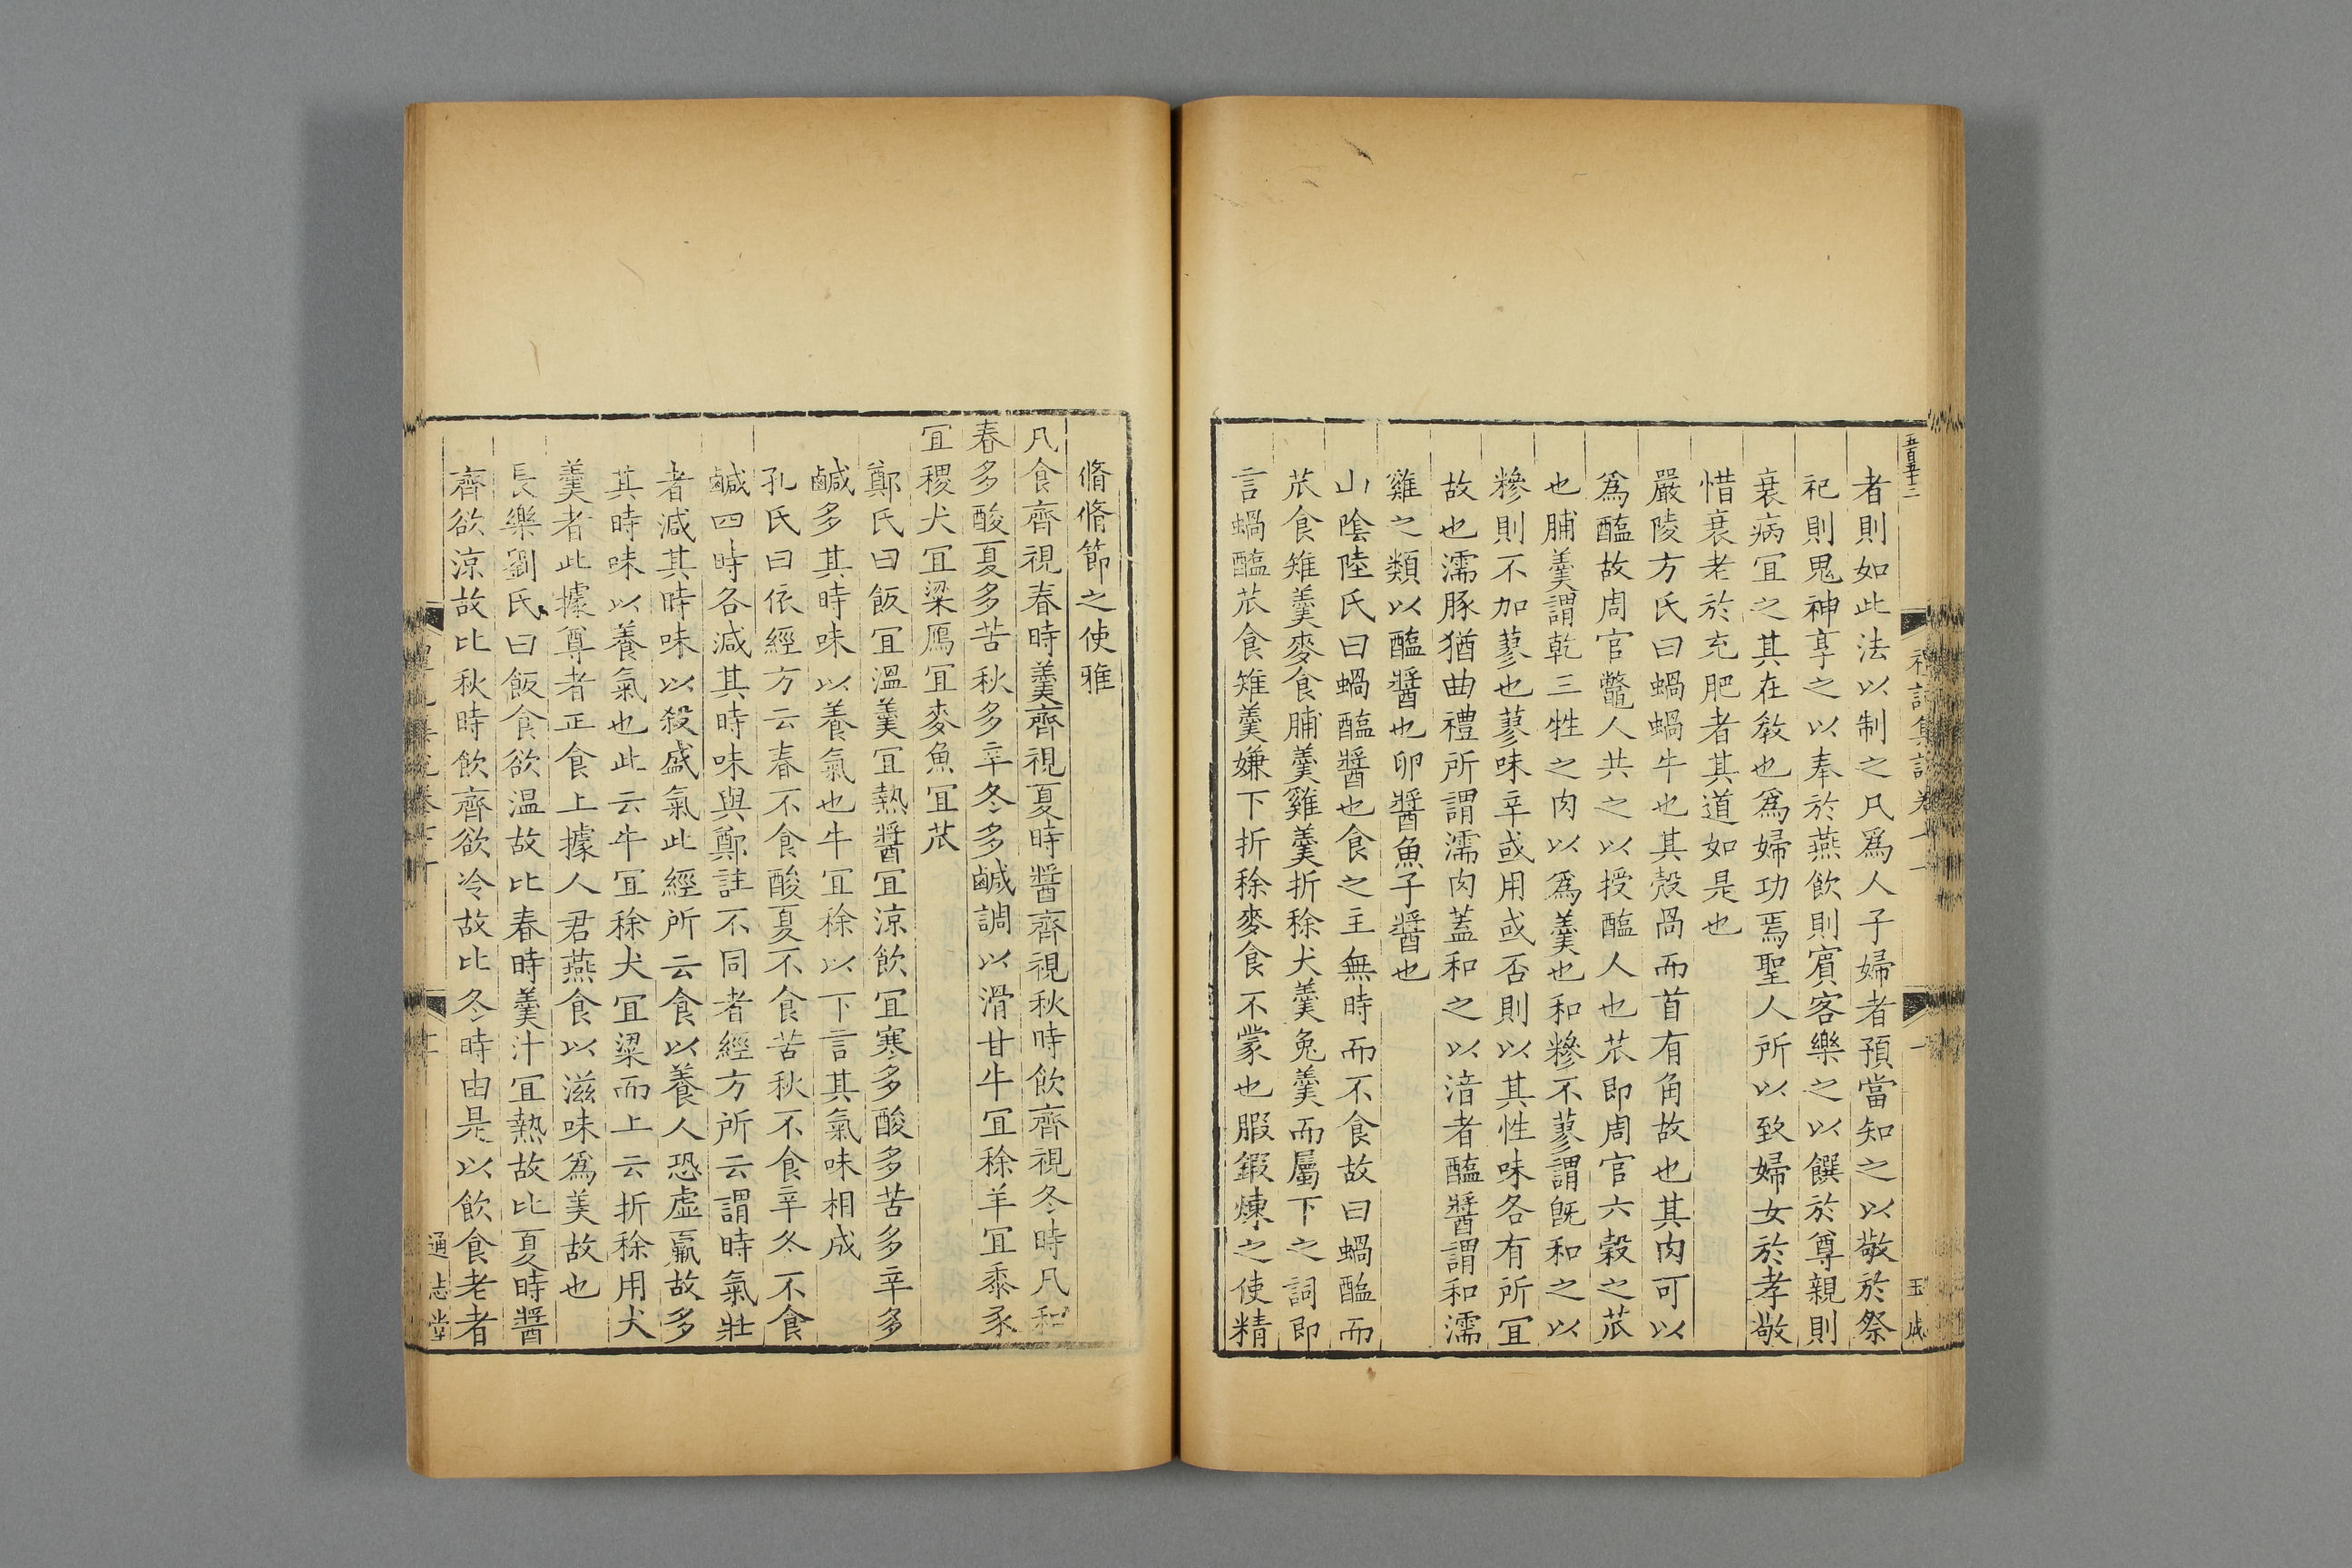 五百五十二
者則如此法以制之凡爲人子婦者預當知之以敬於祭
祀則鬼神享之以奉於燕飲則賓客樂之以饌於尊親則
衰病宜之其在教也爲婦功焉聖人所以致婦女於孝敬
惜衰老於充肥者其道如是也
嚴陵方氏曰蝸蝸牛也其殼咼而首有角故也其肉可以
爲醢故周官鼈人共之以授醢人也苽即周官六穀之苽
也脯羹謂乾三牲之肉以爲羹也和糝不蓼謂旣和之以
糝則不加蓼也蓼味辛或用或否則以其性味各有所宜
故也濡豚猶曲禮所謂濡肉蓋和之以湆者醢醬謂和濡
雞之類以醢醬也卵醬魚子醬也
山陰陸氏曰蝸醢醬也食之主無時而不食故曰蝸醢而
苽食雉羹麥食脯羹雞羹折稌犬羹兔羹而屬下之詞即
言蝸醢苽食雉羹嫌下折稌麥食不蒙也腶鍜煉之使精
脩脩節之使雅
凡食齊視春時羹齊視夏時醬齊視秋時飲齊視冬時凡和
春多酸夏多苦秋多辛冬多鹹調以滑甘牛宜稌羊宜黍豕
宜稷犬宜粱鴈宜麥魚宜苽
鄭氏曰飯宜溫羹宜熱醬宜涼飲宜寒多酸多苦多辛多
鹹多其時味以養氣也牛宜稌以下言其氣味相成
孔氏曰依經方云春不食酸夏不食苦秋不食辛冬不食
鹹四時各減其時味與鄭註不同者經方所云謂時氣壯
者減其時味以殺盛氣此經所云食以養人恐虛羸故多
其時味以養氣也此云牛宜稌犬宜粱而上云折稌用犬
羹者此據尊者正食上據人君燕食以滋味爲美故也
長樂劉氏曰飯食欲温故比春時羹汁宜熱故比夏時醬
齊欲涼故比秋時飲齊欲冷故比冬時由是以飲食老者
通志堂